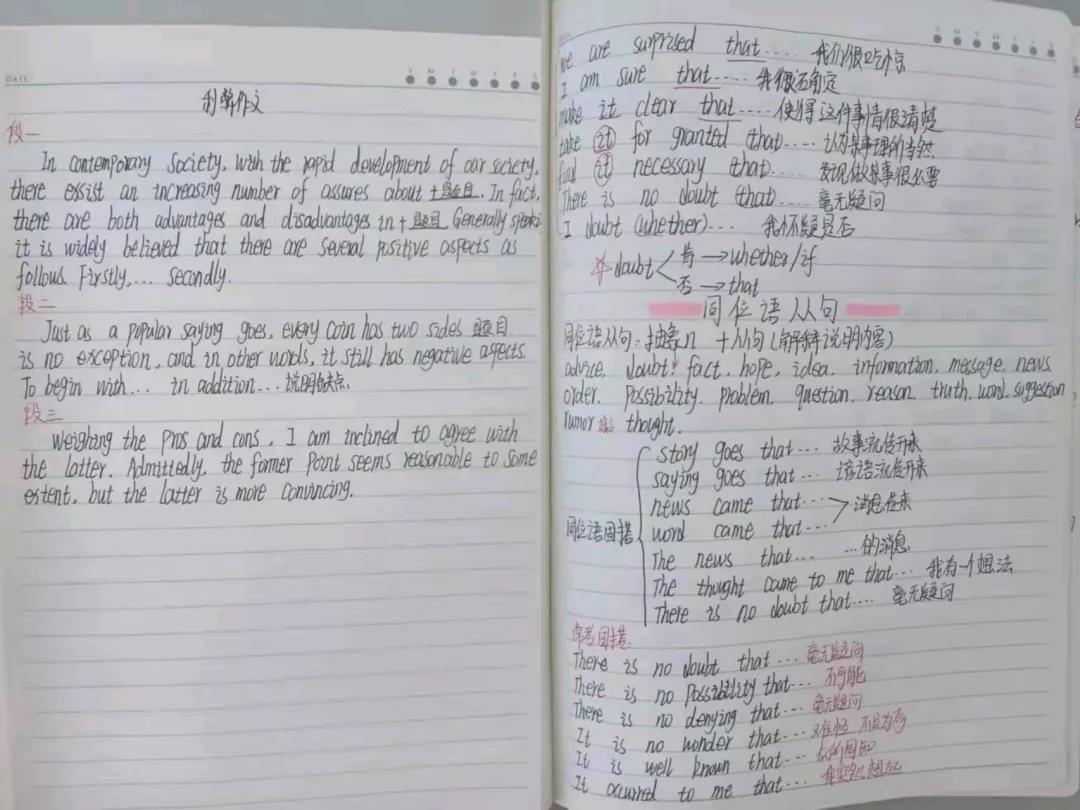 DATE
S M T W T F S
利弊作文
段一
In contemporary society, with the rapid development of our society,
there exsist an increasing number of assures about +题目. In fact,
there are both advantages and disadvantages in + 题目 Generally speaki
it is widely believed that there are several positive aspects as
follows. Firstly,... secondly.
段二
Just as a popular saying goes, every coin has two sides 题目
is no exception, and in other words, it still has negative aspects.
To begin with... in addition... 说明缺点.
段三
Weighing the pros and cons, I am inclined to agree with
the latter. Admittedly, the former point seems reasonable to some
extent, but the latter is more convincing.
S M T W T F S
we are surprised that.... 我们很吃惊
I am sure that..... 我很确定
make it clear that..... 使得这件事情很清楚
take it for granted (that.... 认为某事理所当然
find it necessary (that.... 发现做某事很必要
There is no doubt (that.... 毫无疑问
I doubt (whether)... 我怀疑是否
doubt 肯→whether/if
否→that
同位语从句
同位语从句:抽象n +从句(解释说明内容)
advice. doubt. fact. hope. idea. information. message. news
order. possibility. problem. question. reason. truth. word. suggestion
rumor thought.
同位语固搭
story goes that... 故事流传开来
saying goes that... 谚语流传开来
news came that...
word came that... 消息传来
The news that... ...的消息
The thought came to me that... 我有一个想法
There is no doubt that.... 毫无疑问
常考固搭.
There is no doubt that... 毫无疑问
There is no possibility that... 不可能
There is no denying that... 毫无疑问
It is no wonder that.... 难怪 不足为奇
It is well known that... 众所周知
It ocurred to me that... 我突然想起